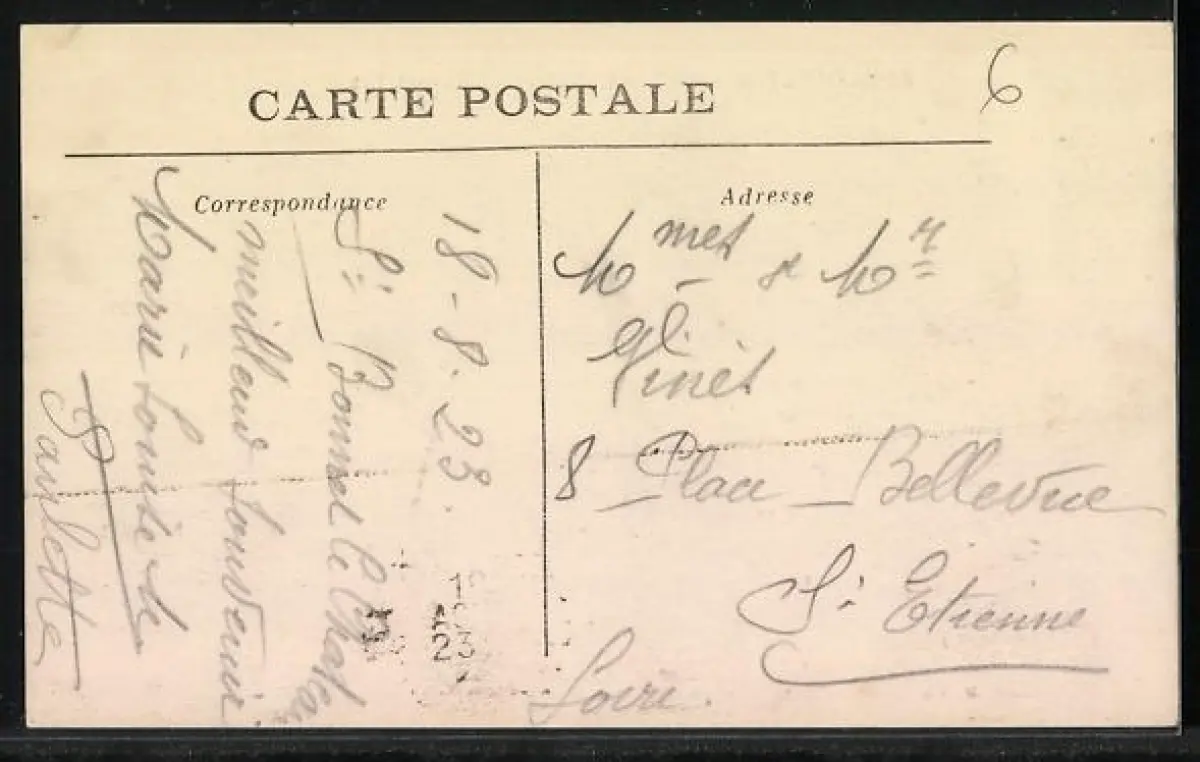 6
CARTE POSTALE
Correspondance
18-8-23.
St Bonnet le Chateau
meilleur souvenir
Marie Louise &
Paulette
19
AO
23
Adresse
Mmes & Mr
Vinès
8 Place Bellevue
St Etienne
Loire.